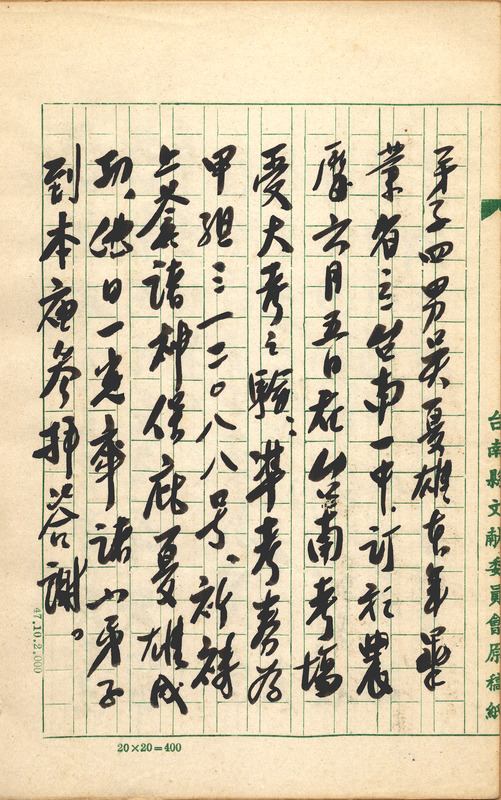 台南縣文獻委員會原稿紙
弟子四男吳夏雄去年畢
業省立台南一中.訂於農
曆六月五日在台南考場
受大考之驗：準考春為
甲組三一二〇八八号、祈禱
上蒼諸神保庇夏雄成
功、他日一定率諸小弟子
到本廟參拝答謝。
47.10.2.000
20×20=400